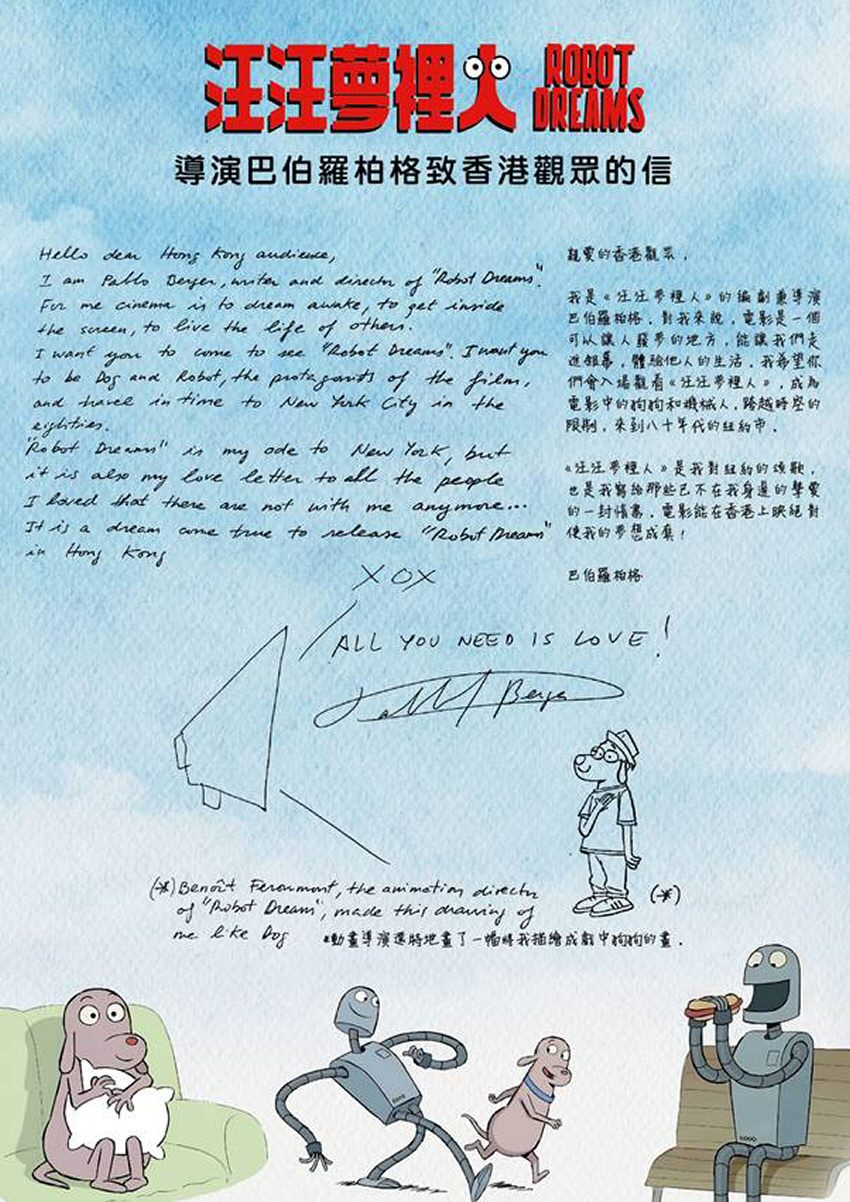 汪汪夢裡人 ROBOT DREAMS
導演巴伯羅柏格致香港觀眾的信
Hello dear Hong Kong audience,
I am Pablo Berger, writer and director of "Robot Dreams".
For me cinema is to dream awake, to get inside
the screen, to live the life of others.
I want you to come to see "Robot Dreams". I want you
to be Dog and Robot, the protagonists of the film,
and travel in time to New York City in the
eighties.
"Robot Dreams" is my ode to New York, but
it is also my love letter to all the people
I loved that there are not with me anymore...
It is a dream come true to release "Robot Dreams"
in Hong Kong
XOX
ALL YOU NEED IS LOVE!
Pablo Berger
親愛的香港觀眾，
我是《汪汪夢裡人》的編劇兼導演
巴伯羅柏格，對我來說，電影是一個
可以讓人發夢的地方，能讓我們走
進銀幕，體驗他人的生活。我希望你
們會入場觀看《汪汪夢裡人》，成為
電影中的狗狗和機械人，跨越時空的
限制，來到八十年代的紐約市。
《汪汪夢裡人》是我對紐約的頌歌，
也是我寫給那些已不在我身邊的摯愛
的一封情書。電影能在香港上映絕對
使我的夢想成真！
巴伯羅柏格
(*) Benoît Feroumont, the animation director
of "Robot Dreams", made this drawing of
me like Dog
(*)
*動畫導演還特地畫了一幅將我描繪成戲中狗狗的畫。